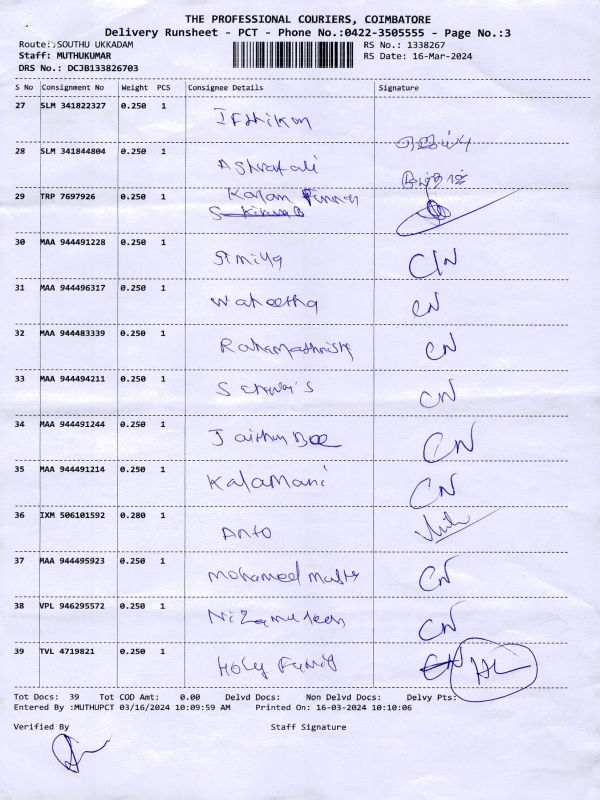 THE PROFESSIONAL COURIERS, COIMBATORE
Delivery Runsheet - PCT - Phone No.:0422-3505555 - Page No.:3
Route: SOUTHU UKKADAM RS No.: 1338267
Staff: MUTHUKUMAR RS Date: 16-Mar-2024
DRS No.: DCJB133826703
S No Consignment No Weight PCS Consignee Details Signature
27 SLM 341822327 0.250 1 Ifthikon
28 SLM 341844804 0.250 1 Ashrafali
29 TRP 7697926 0.250 1 Kalan
30 MAA 944491228 0.250 1 Simiya CN
31 MAA 944496317 0.250 1 Waheetha CN
32 MAA 944483339 0.250 1 CN
33 MAA 944494211 0.250 1 CN
34 MAA 944491244 0.250 1 Jaithun Bee CN
35 MAA 944491214 0.250 1 Kalamani CN
36 IXM 506101592 0.280 1 Anto
37 MAA 944495923 0.250 1 Mohamed CN
38 VPL 946295572 0.250 1 CN
39 TVL 4719821 0.250 1 Holy Family CN
Tot Docs: 39 Tot COD Amt: 0.00 Delvd Docs: Non Delvd Docs: Delvy Pts:
Entered By :MUTHUPCT 03/16/2024 10:09:59 AM Printed On: 16-03-2024 10:10:06
Verified By Staff Signature